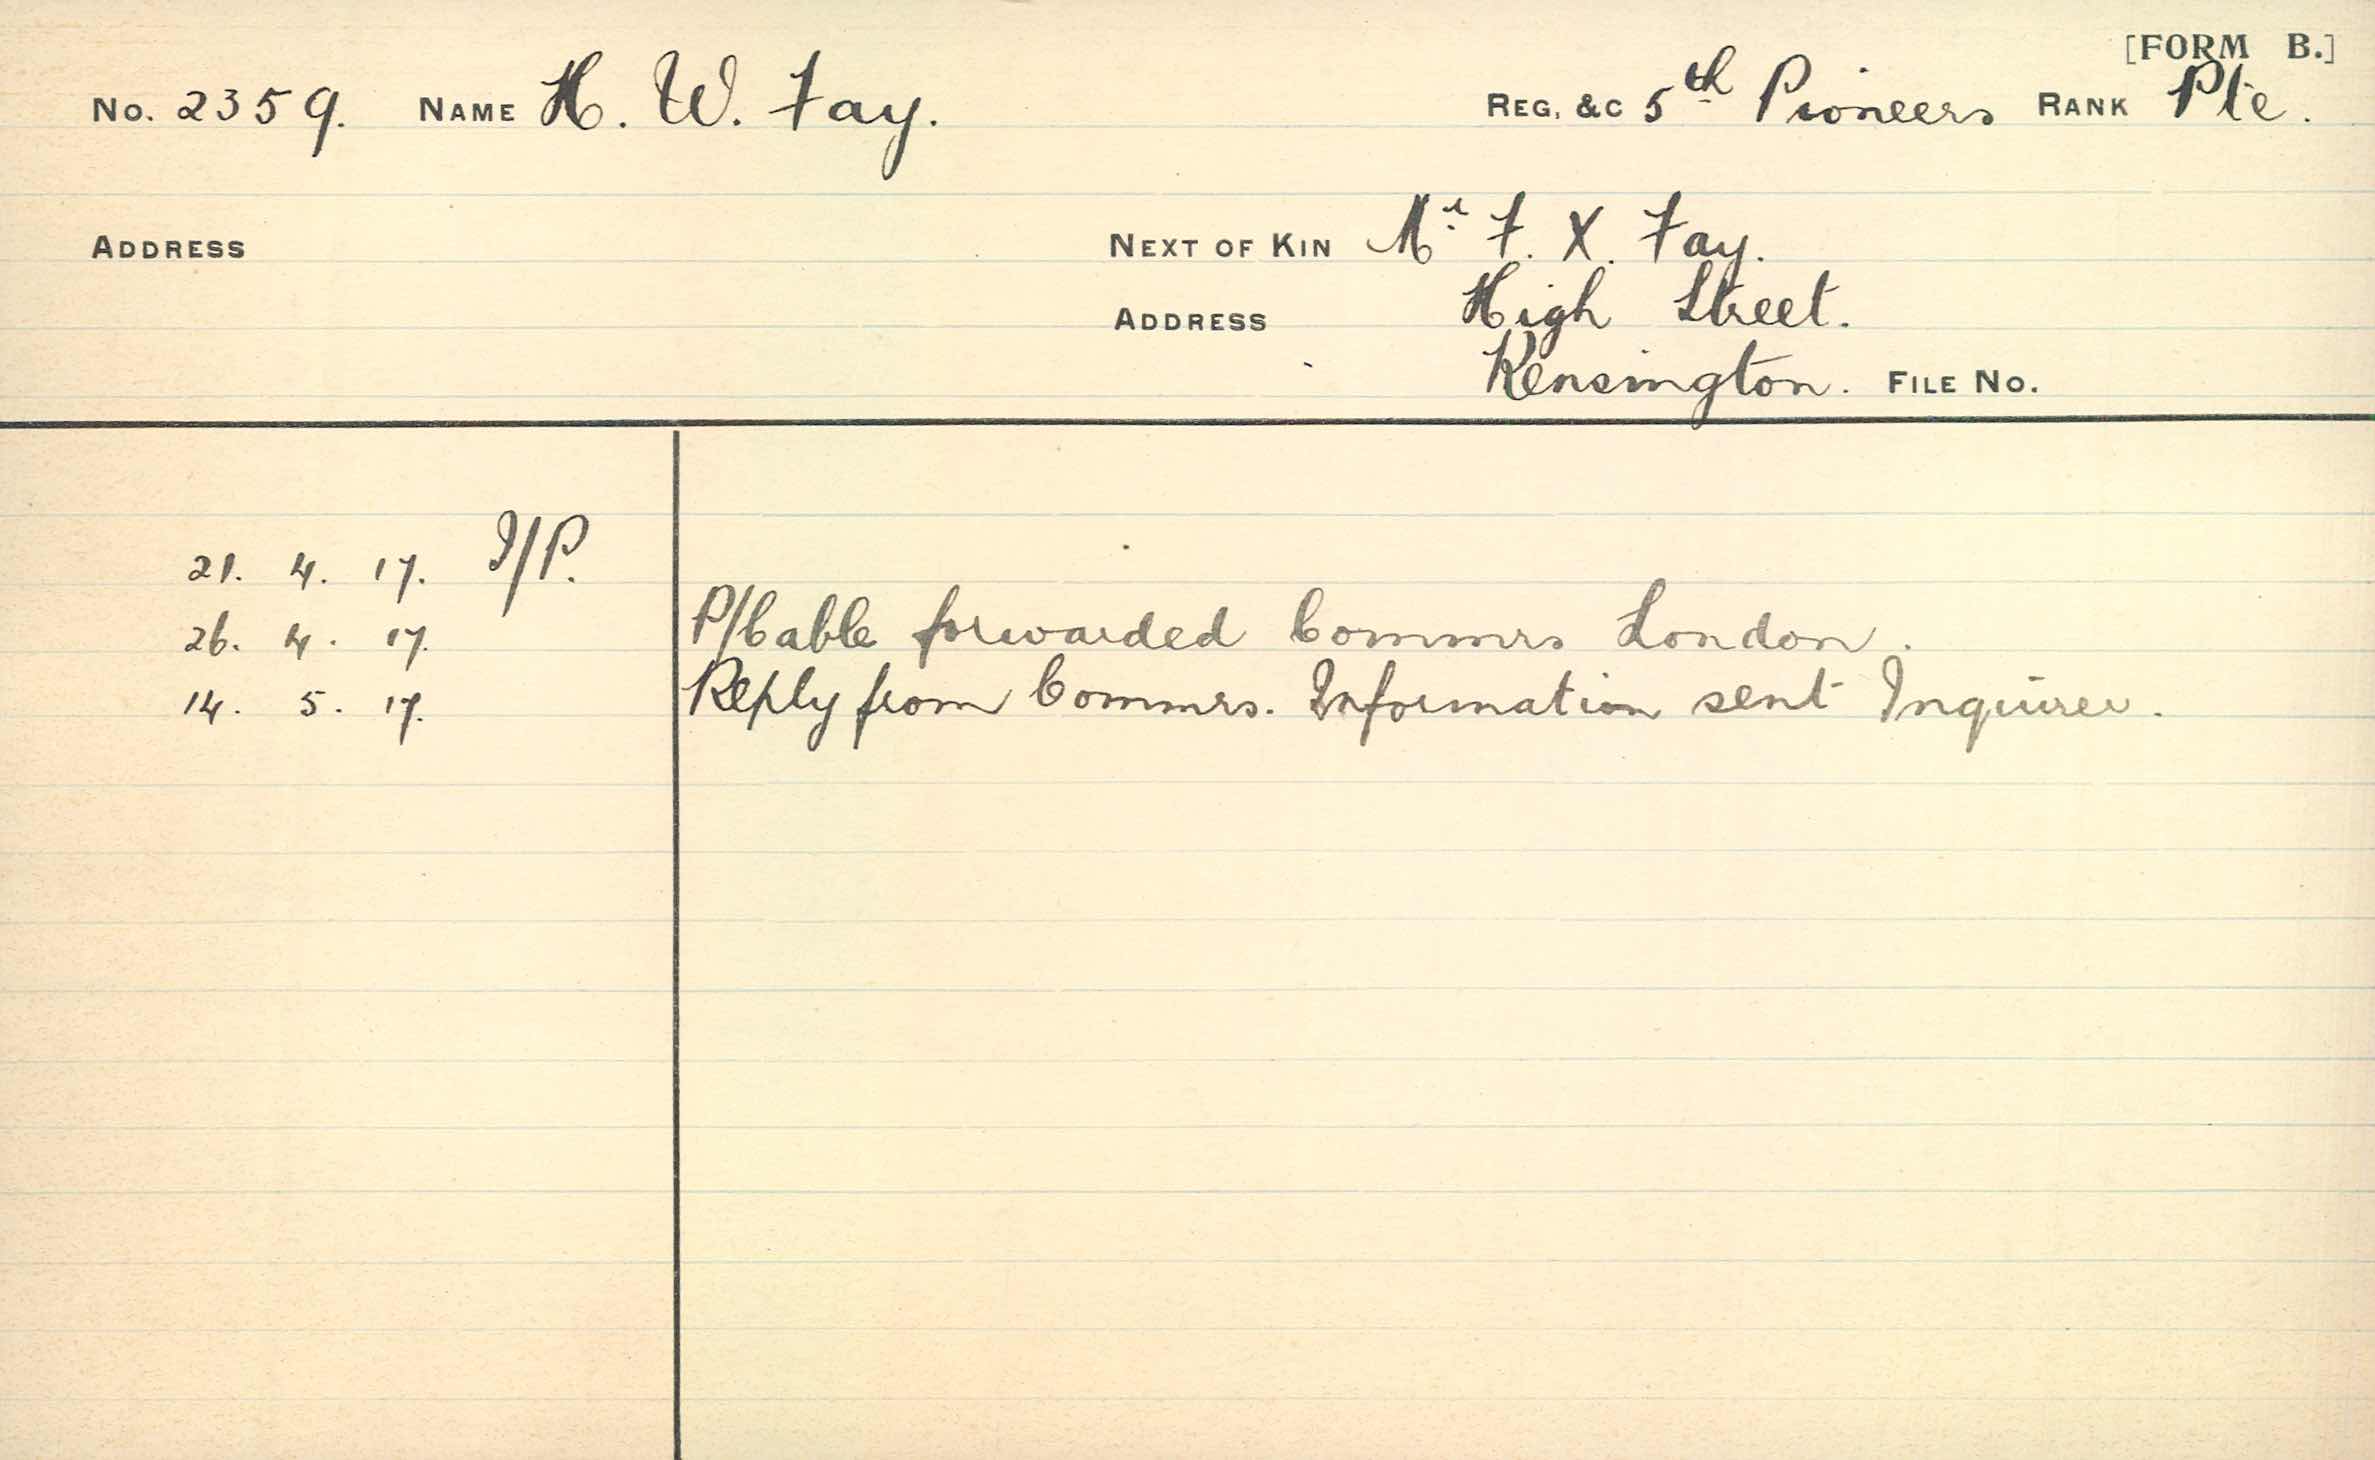 [FORM B.]
No. 2359. NAME H. W. Fay. REG. &C 5th Pioneers RANK Pte.
ADDRESS NEXT OF KIN Mr F. X. Fay.
ADDRESS High Street.
Kensington. FILE No.
21. 4. 17. I/P.
26. 4. 17. P/Cable forwarded Commrs London.
14. 5. 17. Reply from Commrs. Information sent Inquirer.